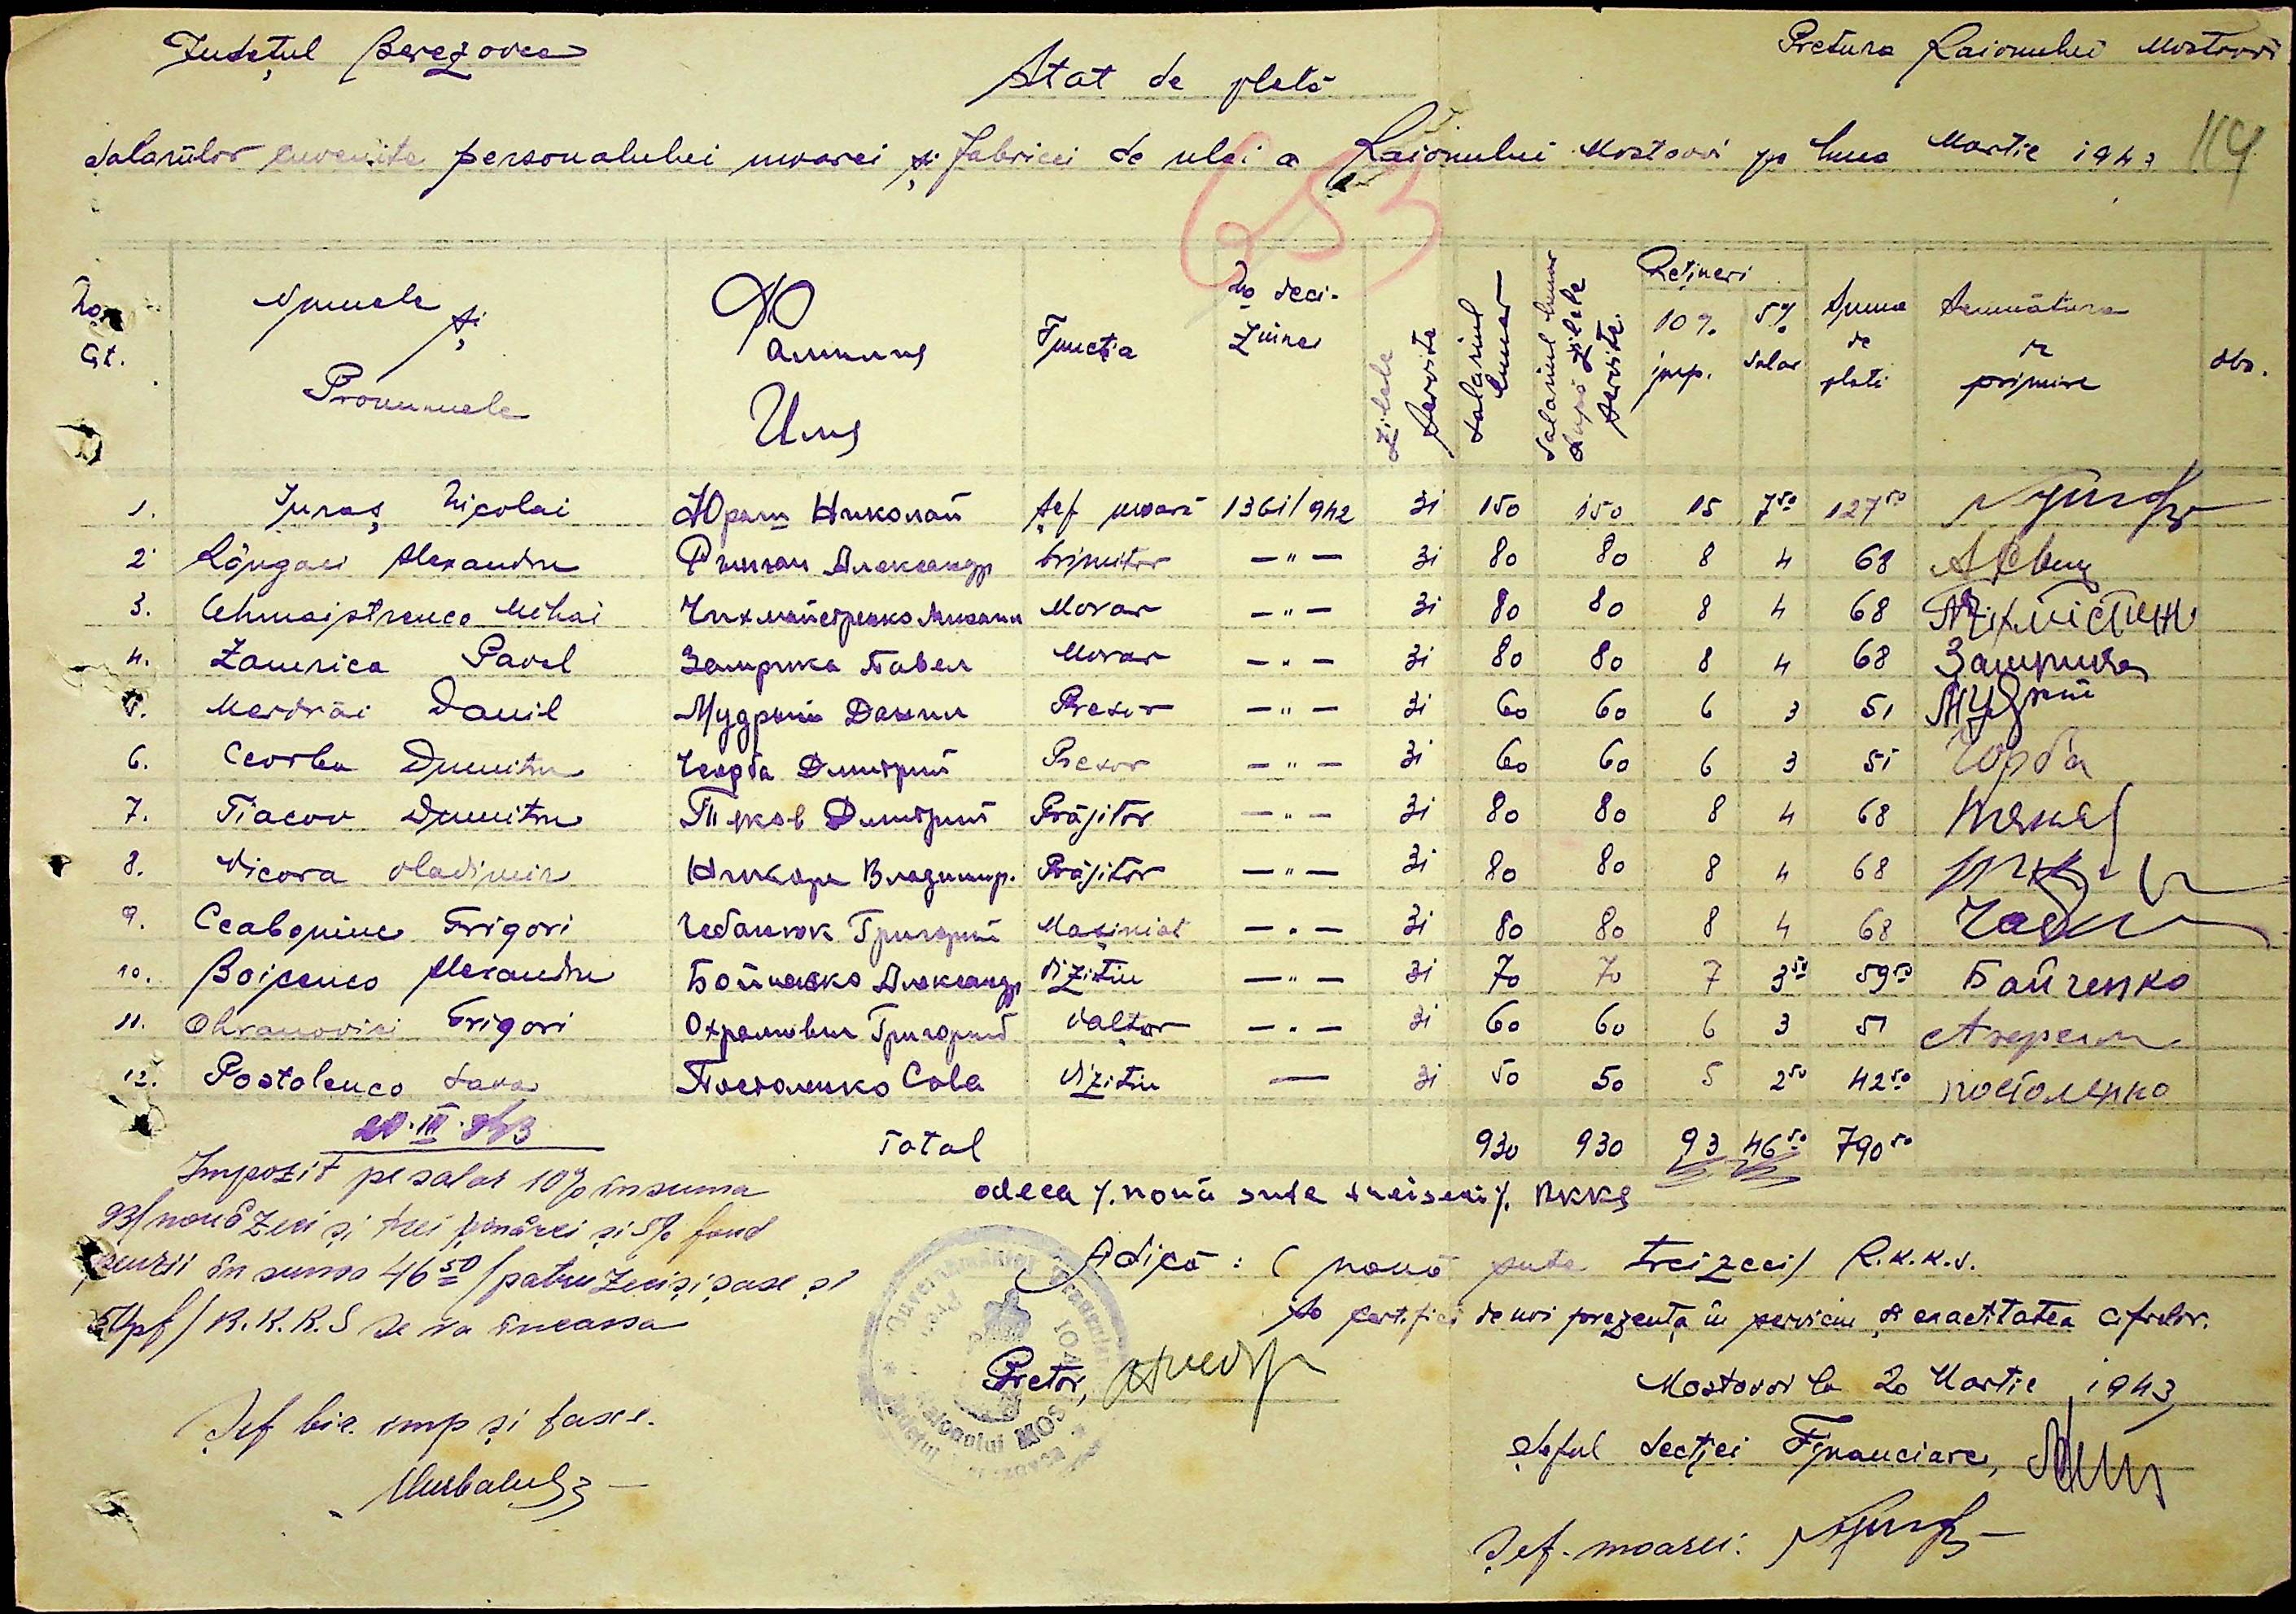 Județul Berezovca
Pretura Raionului Mostovoi
Stat de plată
Salariilor cuvenite personalului moarei și fabricei de ulei a Raionului Mostovoi pe luna Martie 1943
114
653
No Ct.
Numele și Pronumele
Функția
No deciziunei
Zilele servite
Salariul lunar
Salariul lunar după zilele servite
Rețineri
10% imp.
5% salar
Suma de plată
Semnătura de primire
Obs.
1. Juraș Nicolai Юраш Николай Șef moară 1361/942 31 150 150 15 7 50 127 50
2 Rângaci Alexandru Александр Primitor —"— 31 80 80 8 4 68
3. Cihmaistrenco Mihai Чихмайстренко Михаил Morar —"— 31 80 80 8 4 68
4. Zamrica Pavel Замрика Павел Morar —"— 31 80 80 8 4 68 Замрика
5. Danil Мудрий Данил Presor —"— 31 60 60 6 3 51 Мудрий
6. Ceorba Dumitru Чорба Димитрий Presor —"— 31 60 60 6 3 51 Чорба
7. Tiacov Dumitru Тяков Димитрий Prăjitor —"— 31 80 80 8 4 68
8. Nicora Vladimir Никора Владимир. Prăjitor —"— 31 80 80 8 4 68
9. Ceabaniuc Grigori Чебанюк Григорий Mașinist —"— 31 80 80 8 4 68
10. Boicenco Alexandru Бойченко Александр Vizitiu —"— 31 70 70 7 3 50 59 50 Байченко
11. Ohranovici Grigori Охранович Григорий Valțar —"— 31 60 60 6 3 51
12. Postolenco Sava Постоленко Сава Vizitiu — 31 50 50 5 2 50 42 50 постоленко
Total 930 930 93 46 50 790 50
20.III.943
adeca /. nouă sute treizeci /. RKKS
Impozit pe salar 10% în suma
93/nouă zeci și trei mărci și 5% fond
pensii în suma 46 50/patru zeci și șase și
50 pf/ R.K.K.S se va încasa
Adică: ( nouă sute treizeci/ R.K.K.S.
Se certifică de noi prezenta în serviciu și exactitatea cifrelor.
Pretor,
Mostovoi la 20 Martie 1943
Șef bir. imp și taxe.
Șeful Secției Financiare,
Șef. moarei: